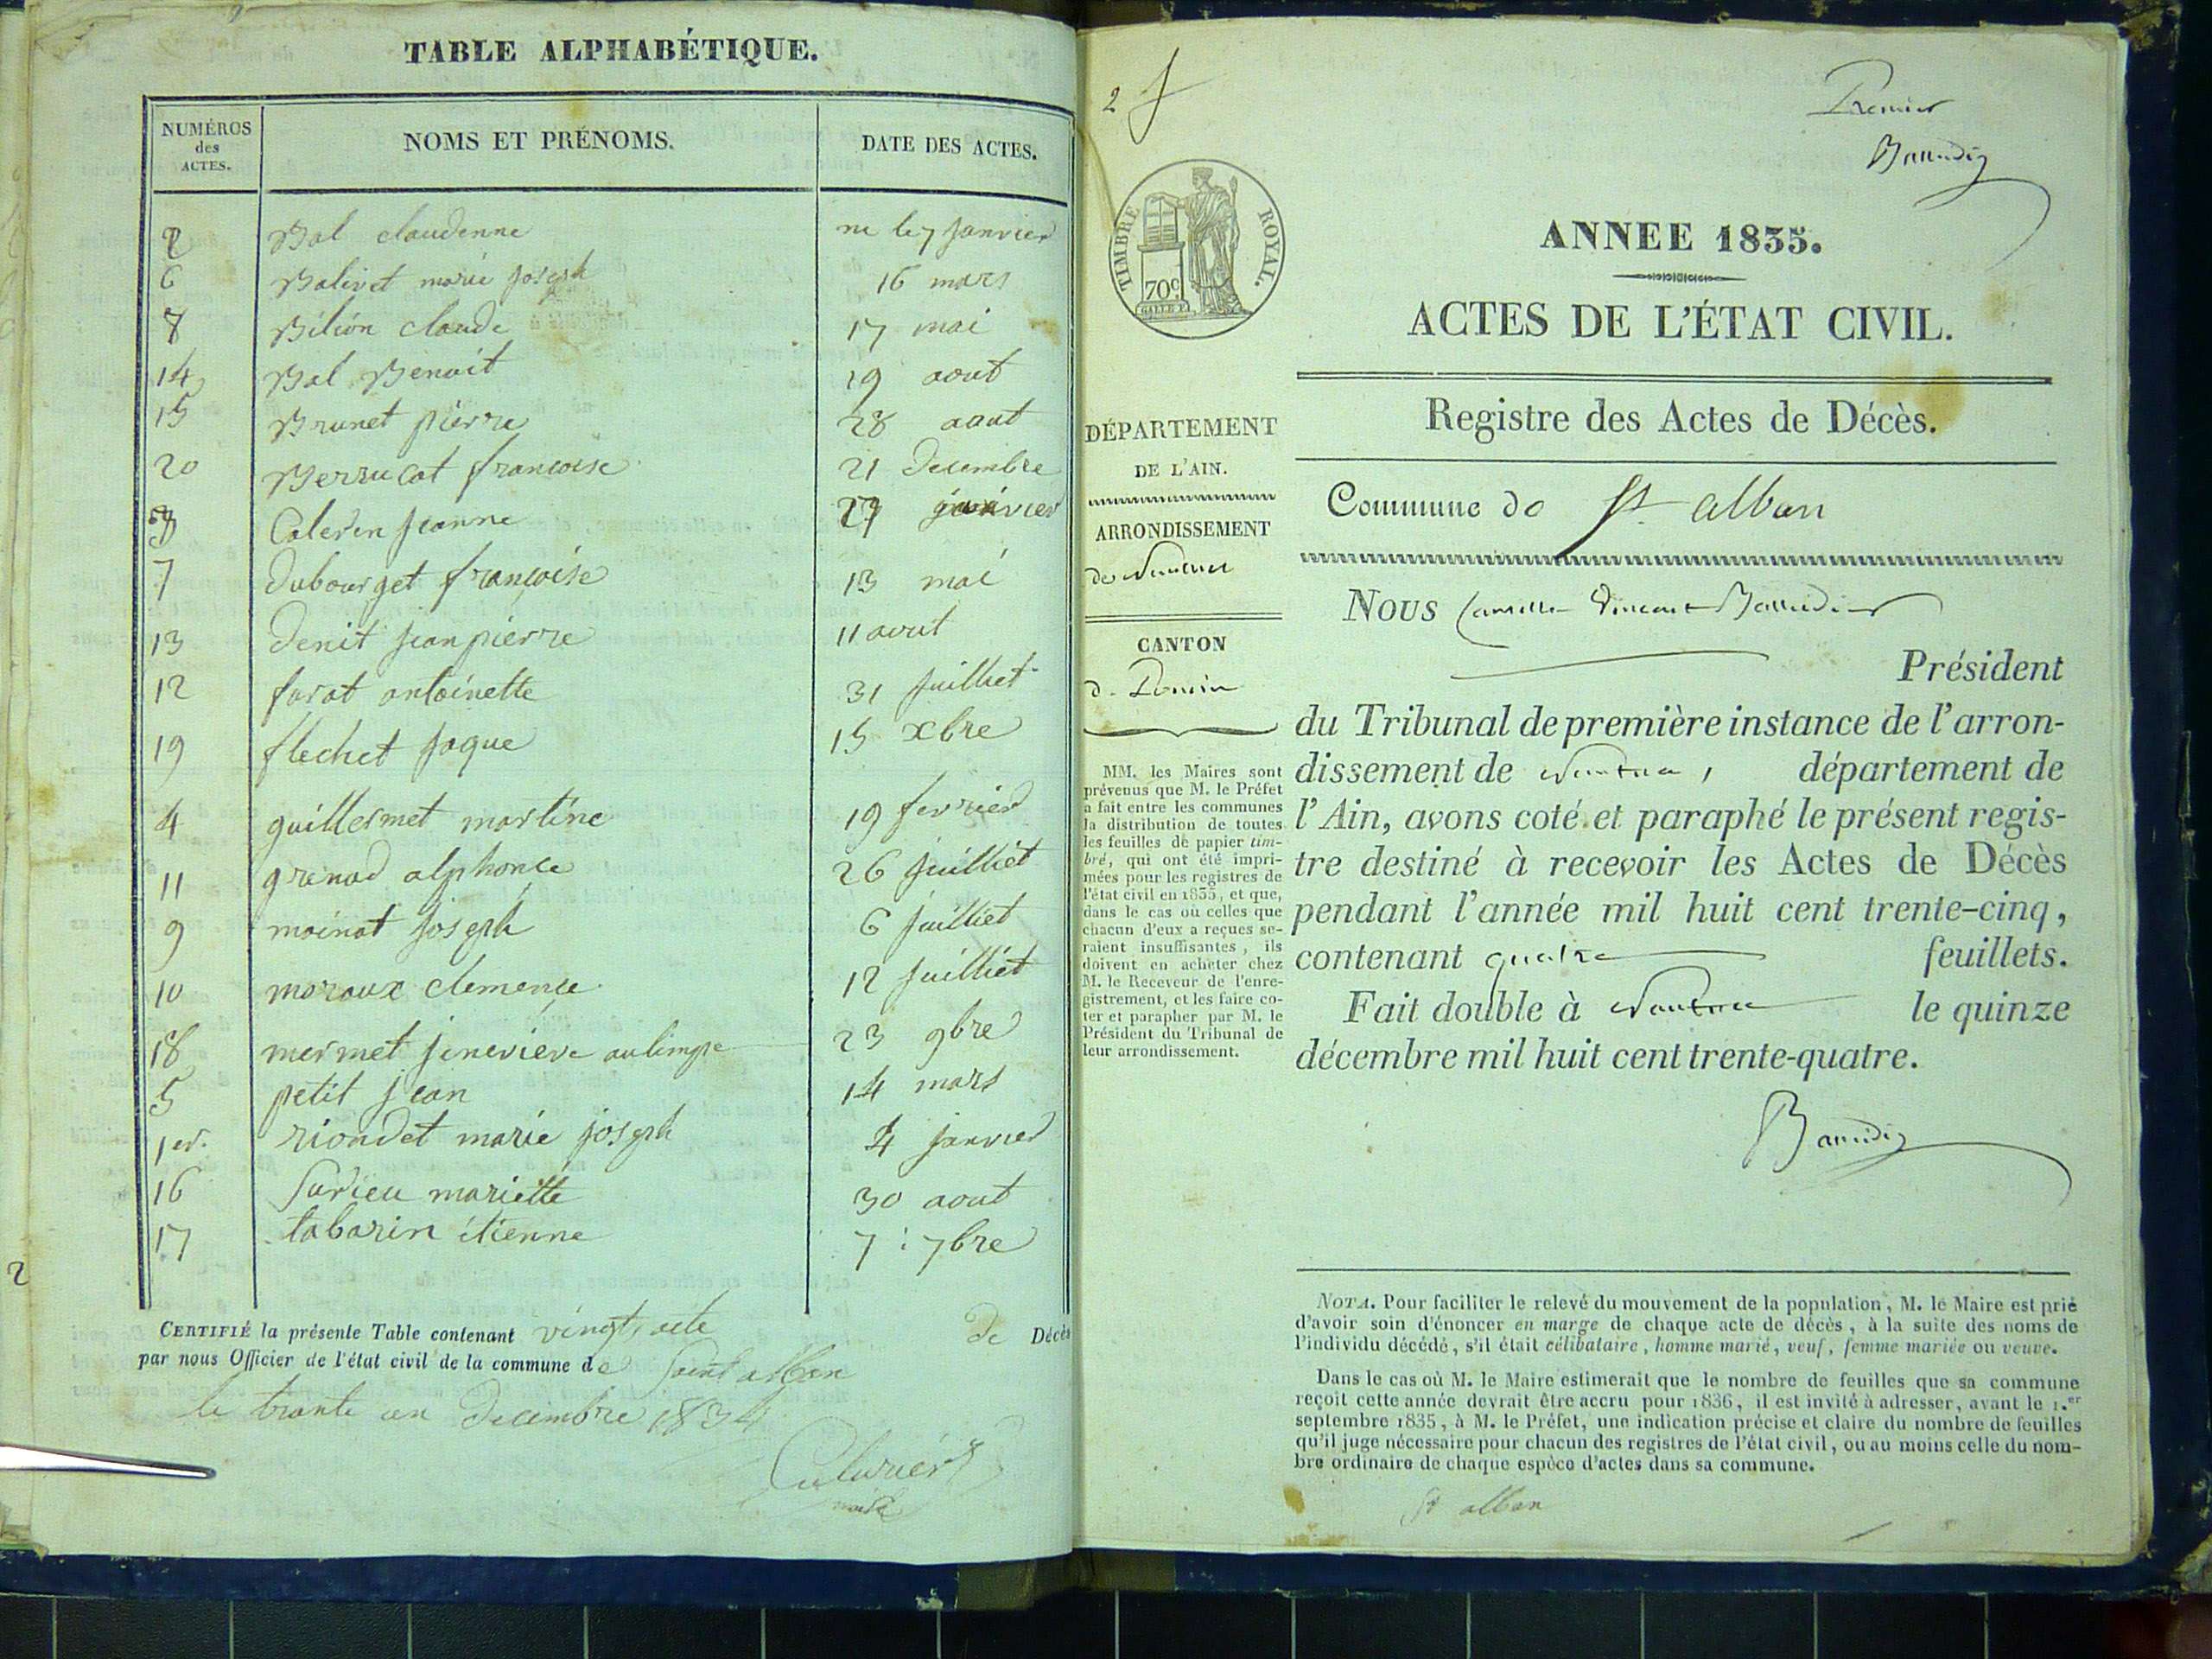 TABLE ALPHABÉTIQUE.
NUMÉROS des ACTES. NOMS ET PRÉNOMS. DATE DES ACTES.
2 Bal claudenne ne le 7 janvier
6 Balivet marie joseph 16 mars
8 Bilion claude 17 mai
14 Bal Benoit 19 aout
15 Brunet pierre 28 aout
20 Berrucat francoise 21 decembre
3 Calerin jeanne 27 janvier
7 dubourget françoise 13 mai
13 denit jean pierre 11 aout
12 farat antoinette 31 juilliet
19 flechet jaque 15 xbre
4 guillermet martine 19 fevrier
11 grenad alphonce 26 juilliet
9 moinat joseph 6 juilliet
10 moraux clemence 12 juilliet
18 mermet jenevieve aulimpe 23 9bre
5 petit jean 14 mars
1er. riondet marie joseph 4 janvier
16 Surieu mariette 30 aout
17 tabarin étienne 7 : 7bre
CERTIFIÉ la présente Table contenant vingt acte de Décès
par nous Officier de l'état civil de la commune de Saint alban
le trante un decembre 1834
2
2
Premier
TIMBRE ROYAL.
70c
ANNEE 1835.
ACTES DE L'ÉTAT CIVIL.
Registre des Actes de Décès.
Commune de St alban
DÉPARTEMENT
DE L'AIN.
ARRONDISSEMENT
de Nantua
CANTON
d. Poncin
MM. les Maires sont
prévenus que M. le Préfet
a fait entre les communes
la distribution de toutes
les feuilles de papier tim-
bré, qui ont été impri-
mées pour les registres de
l'état civil en 1835, et que,
dans le cas où celles que
chacun d'eux a reçues se-
raient insuffisantes, ils
doivent en acheter chez
M. le Receveur de l'enre-
gistrement, et les faire co-
ter et parapher par M. le
Président du Tribunal de
leur arrondissement.
Nous Camille Vincent
Président
du Tribunal de première instance de l'arron-
dissement de Nantua, département de
l'Ain, avons coté et paraphé le présent regis-
tre destiné à recevoir les Actes de Décès
pendant l'année mil huit cent trente-cinq,
contenant quatre feuillets.
Fait double à Nantua le quinze
décembre mil huit cent trente-quatre.
NOTA. Pour faciliter le relevé du mouvement de la population, M. le Maire est prié
d'avoir soin d'énoncer en marge de chaque acte de décès, à la suite des noms de
l'individu décédé, s'il était célibataire, homme marié, veuf, femme mariée ou veuve.
Dans le cas où M. le Maire estimerait que le nombre de feuilles que sa commune
reçoit cette année devrait être accru pour 1836, il est invité à adresser, avant le 1.er
septembre 1835, à M. le Préfet, une indication précise et claire du nombre de feuilles
qu'il juge nécessaire pour chacun des registres de l'état civil, ou au moins celle du nom-
bre ordinaire de chaque espèce d'actes dans sa commune.
St alban